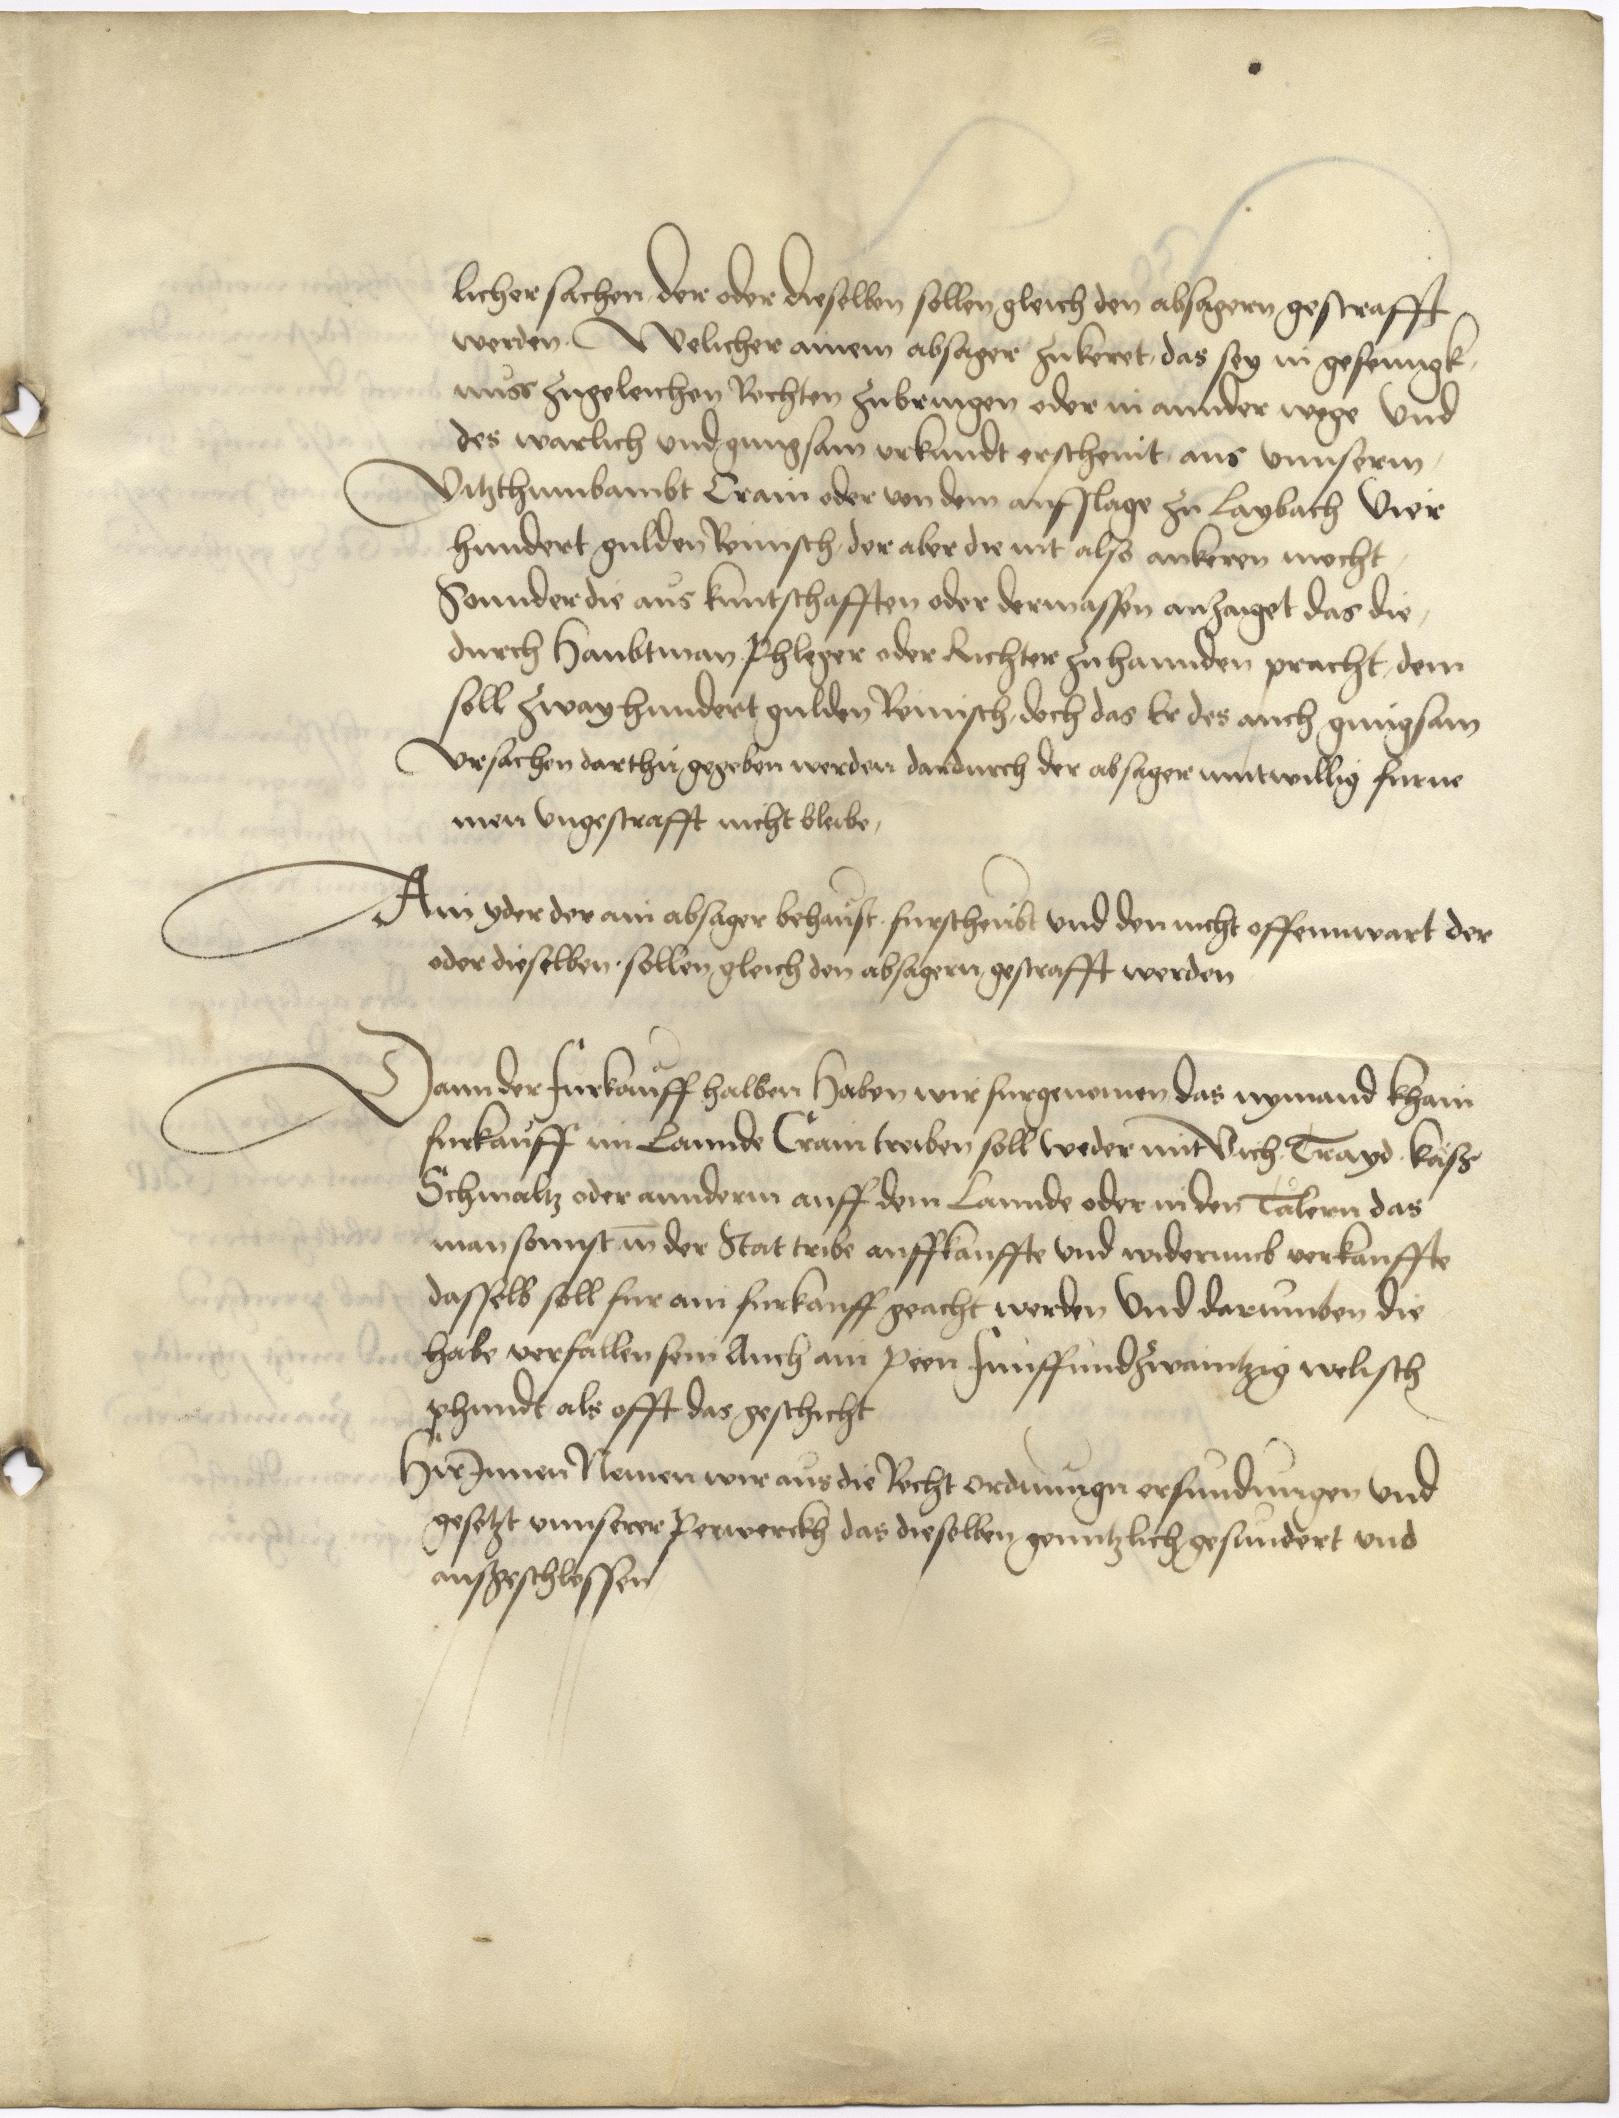 licher sachen, der oder dieselben sollen gleich den absagern gestrafft
werden. Welicher ainem absager zukeret, das sey in gefenngk,
nuss zugeleichen Rechten zubringen oder in annder wege Und
des warlich und gnugsam urkundt erscheint, aus unnserm,
Vitzthumbambt Crain oder von dem aufslage zu Laybach Vier
hundert gulden Reinisch, der aber die nit also ankeren mocht,
Sonnder die aus kuntschafften oder dermassen anzaiget das die,
durch Haubtman Phleger oder Richter zuhannden pracht, dem
soll zwayhundert gulden Reinisch, doch das Er des auch gnugsam
Ursachen darthu, gegeben werden dardurch der absager mutwillig furne
men Ungestrafft nicht bleibe,
Ain yder der ain absager behaust, furscheubt Und den nicht offennwart der
oder dieselben, sollen gleich den absagern gestrafft werden
Dann der Furkauff halben Haben wir furgenomen das nymand khain
furkauff im Lannde Crain treiben soll weder mit Vich. Trayd. käsz
Schmaltz oder annderm auff dem Lannde oder in den Tälern das
man sonnst in der Stat tribe auffkauffte Und widerumb verkauffte
dasselb soll fur ain furkauff geacht werden Und darumben die
habe verfallen sein Auch ain peen Funffundzwaintzig welisch
phundt als offt das geschicht
HirInnen Nemen wir aus die Recht ordnungen erfundungen Und
gesetzt unnserer Perwerckh das dieselben genntzlich gesundert und
ausgeschlossen